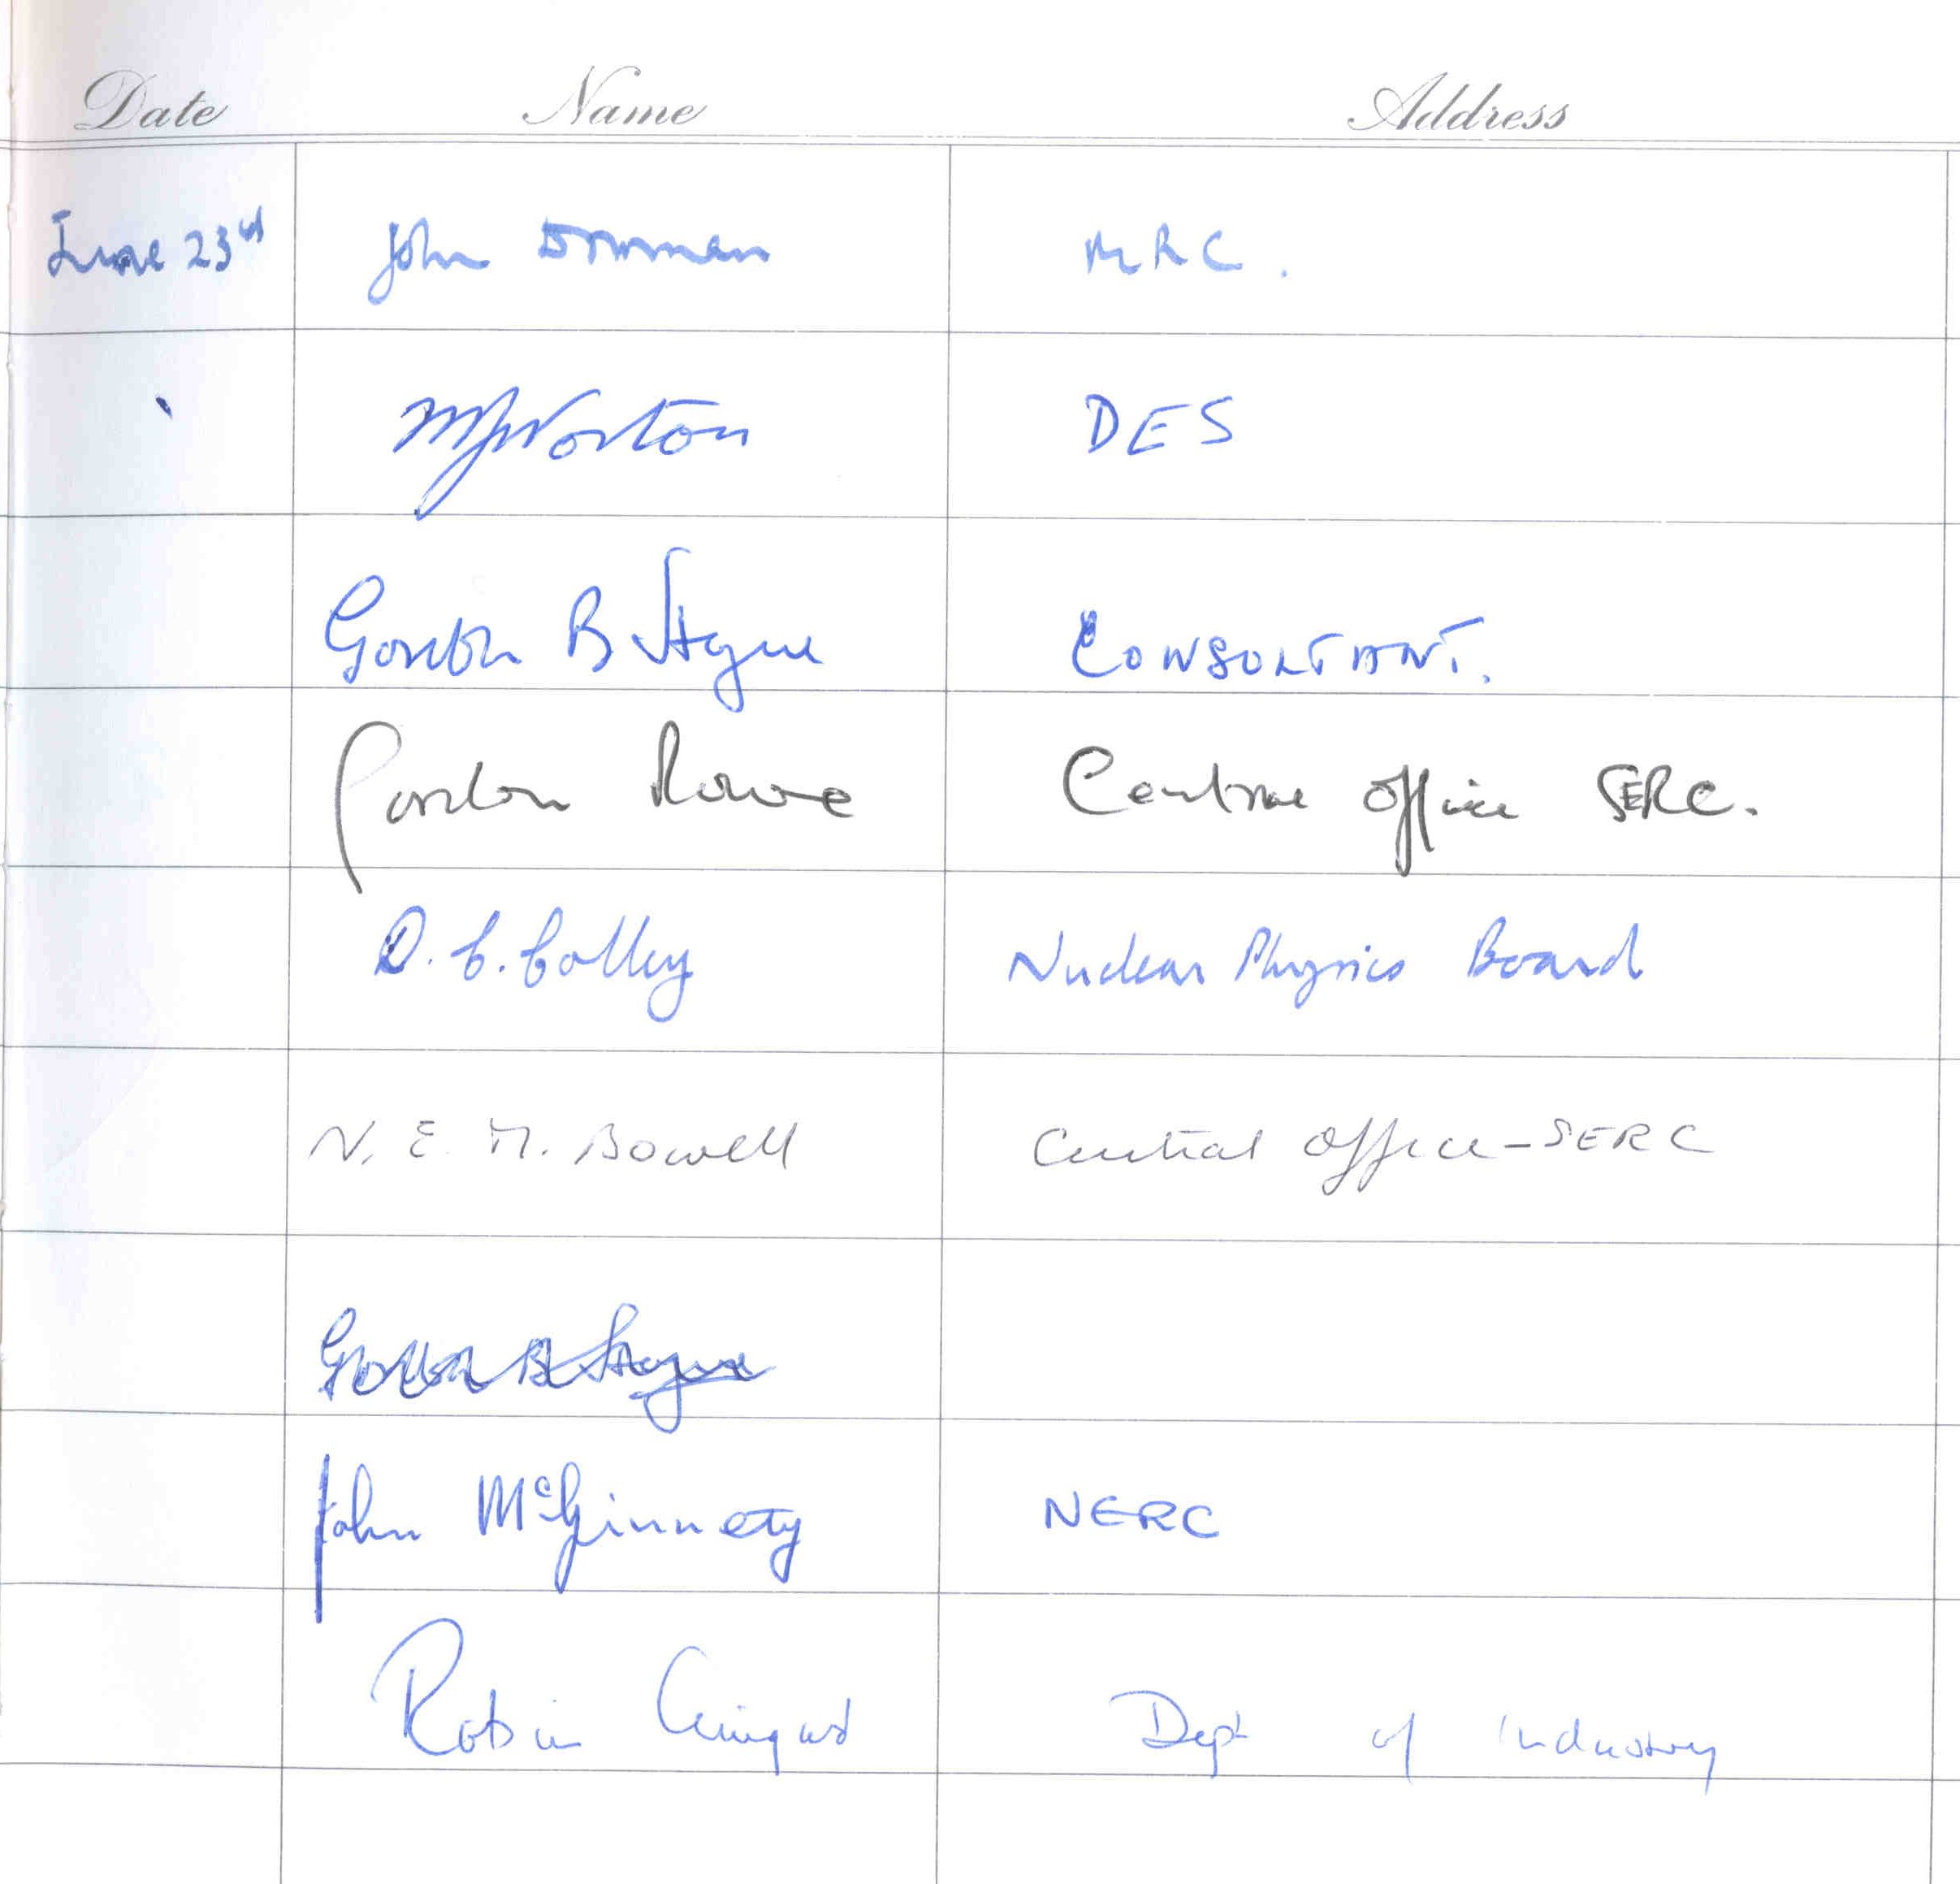 Date Name Address
June 23rd John Bowman MRC.
MJNorton DES
Gordon B Hague CONSULTANT.
Gordon Rowe Central Office SERC.
D. C. Colley Nuclear Physics Board
N. E. M. Bowell Central Office - SERC
Gordon B Hague
John McGinnety NERC
Robin Dept of Industry